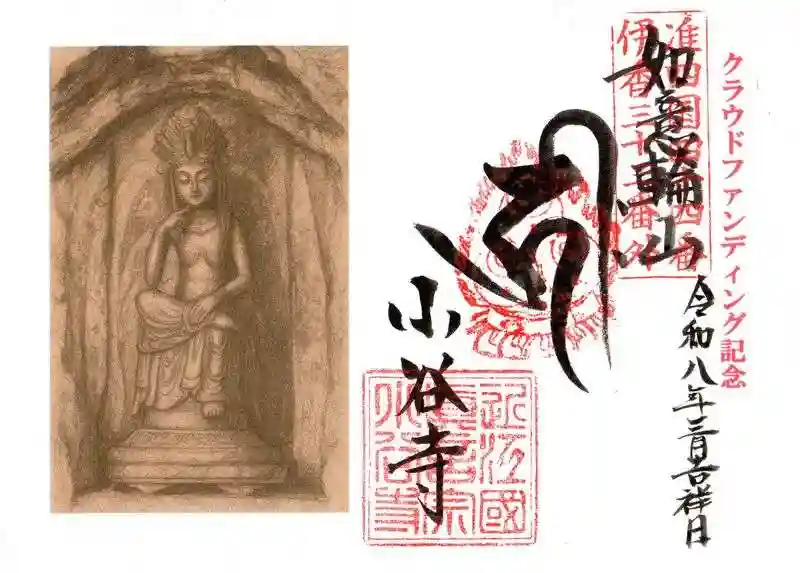 クラウドファンディング記念
令和八年三月吉祥日
伊香三十三番外
如意輪山
小谷寺
近江國
真言宗
小谷寺